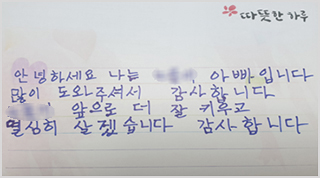 따뜻한 하루
안녕하세요 나는 아빠입니다
많이 도와주셔서 감사합니다
앞으로 더 잘 키우고
열심히 살겠습니다 감사합니다